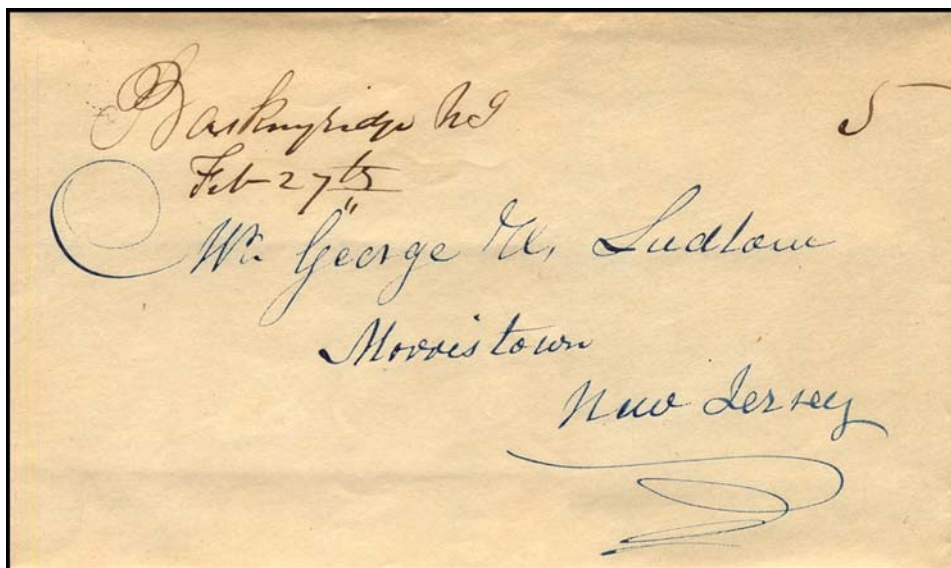 Baskingridge NJ 5
Feb 27th
Mr. George Ludlow
Morristown
New Jersey